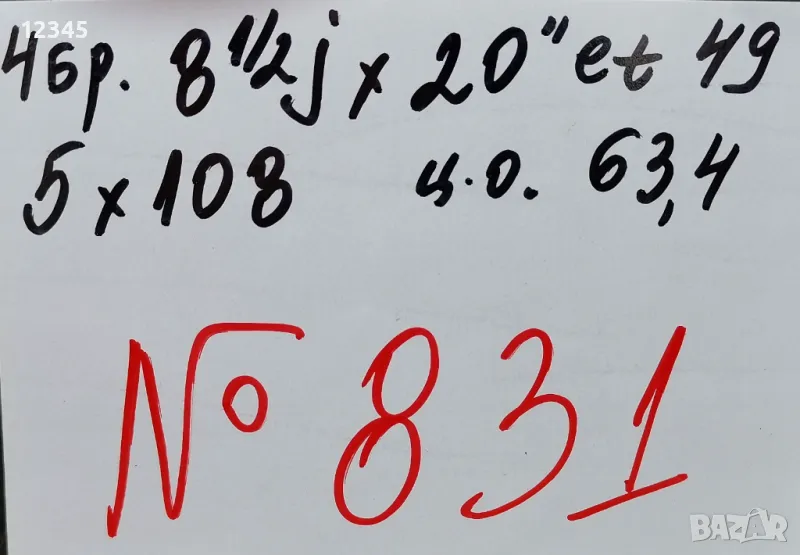 12345
4бр. 8 1/2j x 20" et 49
5 x 108 ц.о. 63,4
№ 831
BAZAR